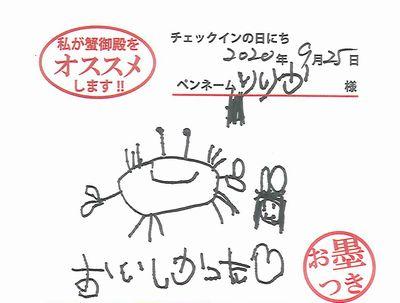 私が蟹御殿を
オススメ
します!!
チェックインの日にち
2020年9月25日
ペンネーム りりか 様
おいしかった♡
お墨
つき